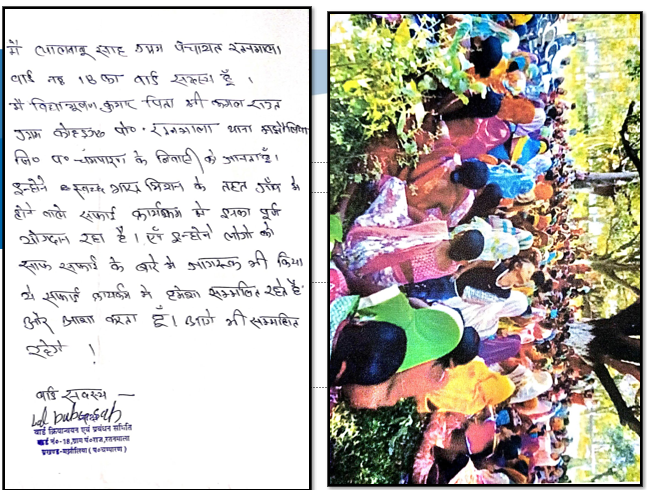 मैं लालबाबु साह ग्राम पंचायत रतनमाला
वार्ड नं० 18 का वार्ड सदस्य हूँ ।
मैं विद्याभूषण कुमार पिता श्री कमल राउत
ग्राम पो० रतनमाला थाना मझौलिया
जि० प० चम्पारण के निवासी को जानता हूँ।
इन्होंने स्वच्छ भारत मिशन के तहत
होने वाले सफाई कार्यक्रम में इनका पूर्ण
योगदान रहा है । एवं इन्होंने लोगो को
साफ सफाई के बारे में जागरूक भी किया
ये सफाई कार्यक्रम में हमेशा सम्मलित रहते है
और आशा करता हूँ। आगे भी सम्मलित
रहेगे !
वार्ड सदस्य —
Lal babu sah
वार्ड क्रियान्वयन एवं प्रबंधन समिति
वार्ड नं०-18, ग्राम पं०राज, रतनमाला
प्रखण्ड-मझौलिया (प०चम्पारण)